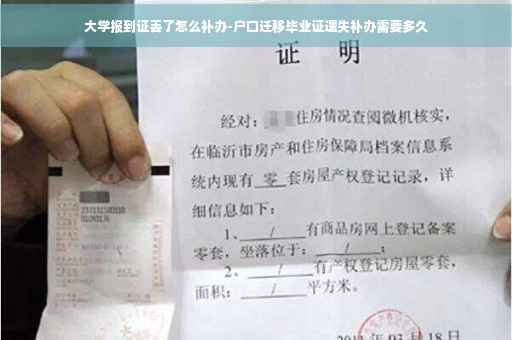 大学报到证丢了怎么补办-户口迁移毕业证遗失补办需要多久
证 明
经对：住房情况查阅微机核实，
在临沂市房产和住房保障局档案信息系
统内现有 零 套房屋产权登记记录，详
细信息如下：
1、 / 有商品房网上登记备案
零套，坐落位于： / ；
2、 / 有产权登记房屋零套，
面积： / 平方米。
年 03 月 18 日